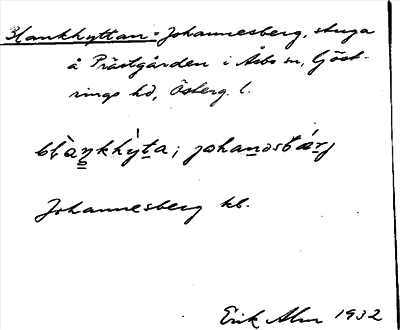 Blankhyttan = Johannesberg, stuga
å Prästgården i Åsbo sn, Göst-
rings hd, Österg. l.
blànkhỳta; johanəsbǽrj
Johannesberg kb.
Erik Alm 1932